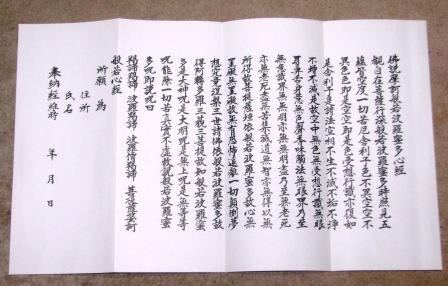 佛説摩訶般若波羅蜜多心經
觀自在菩薩行深般若波羅蜜多時照見五
蘊皆空度一切苦厄舎利子色不異空空不
異色色即是空空即是色受想行識亦復如
是舎利子是諸法空相不生不滅不垢不浄
不増不減是故空中無色無受想行識無眼
耳鼻舌身意無色聲香味觸法無眼界乃至
無意識界無無明亦無無明盡乃至無老死
亦無老死盡無苦集滅道無智亦無得以無
所得故菩提薩埵依般若波羅蜜多故心無
罣礙無罣礙故無有恐怖遠離一切顛倒夢
想究竟涅槃三世諸佛依般若波羅蜜多故
得阿耨多羅三藐三菩提故知般若波羅蜜
多是大神呪是大明呪是無上呪是無等等
呪能除一切苦真實不虚故説般若波羅蜜
多呪即説呪曰
羯諦羯諦 波羅羯諦 波羅僧羯諦 菩提薩婆訶
般若心經
所願 為
住所
氏名
奉納經 年 月 日